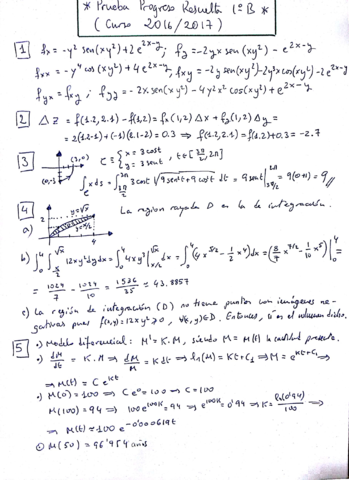 * Prueba Progreso Resuelta 1º B *
( Curso 2016/2017 )
1 fx = -y² sen(xy²) + 2e^{2x-y}; fy = -2yx sen(xy²) - e^{2x-y}
fxx = -y⁴ cos(xy²) + 4e^{2x-y}; fxy = -2y sen(xy²) - 2y³x cos(xy²) - 2e^{2x-y}
fyx = fxy ; fyy = -2x sen(xy²) - 4y²x² cos(xy²) + e^{2x-y}
2 ΔZ = f(1.2, 2.1) - f(1,2) ≈ fx(1,2) Δx + fy(1,2) Δy =
= 2(1.2-1) + (-1)(2.1-2) = 0.3 ⇒ f(1.2, 2.1) ≈ f(1,2) + 0.3 = -2.7
3 (3,0) C ≡ { x = 3 cos t
y = 3 sen t, t ∈ [3π/2, 2π]
∫_C x ds = ∫_{3π/2}^{2π} 3 cos t √(9 sen²t + 9 cos²t) dt = 9 sen t |_{3π/2}^{2π} = 9(0+1) = 9
4 La región rayada D es la de integración.
a) 2 y=√x y=x/2 4
b) ∫₀⁴ ∫_{x/2}^{√x} 12xy² dy dx = ∫₀⁴ 4xy³ |_{x/2}^{√x} dx = ∫₀⁴ (4x^{5/2} - ½ x⁴) dx = (8/7 x^{7/2} - 1/10 x⁵) |₀⁴ =
= 1024/7 - 1024/10 = 1536/35 ≈ 43.8857
c) La región de integración (D) no tiene puntos con imágenes ne-
gativas pues f(x,y) = 12xy² ≥ 0, ∀(x,y) ∈ D. Entonces, es el volumen dicho.
5 a) Modelo diferencial: M' = K·M, siendo M = M(t) la cantidad presente.
dM/dt = K·M ⇒ dM/M = K dt ⇒ ln(M) = Kt + C₁ ⇒ M = e^{Kt+C₁}
⇒ M(t) = C e^{Kt}
M(0) = 100 ⇒ C e⁰ = 100 ⇒ C = 100
M(100) = 94 ⇒ 100 e^{100K} = 94 ⇒ e^{100K} = 0'94 ⇒ K = ln(0'94)/100 ⇒
⇒ M(t) ≈ 100 e^{-0'000619t}
M(50) = 96'954